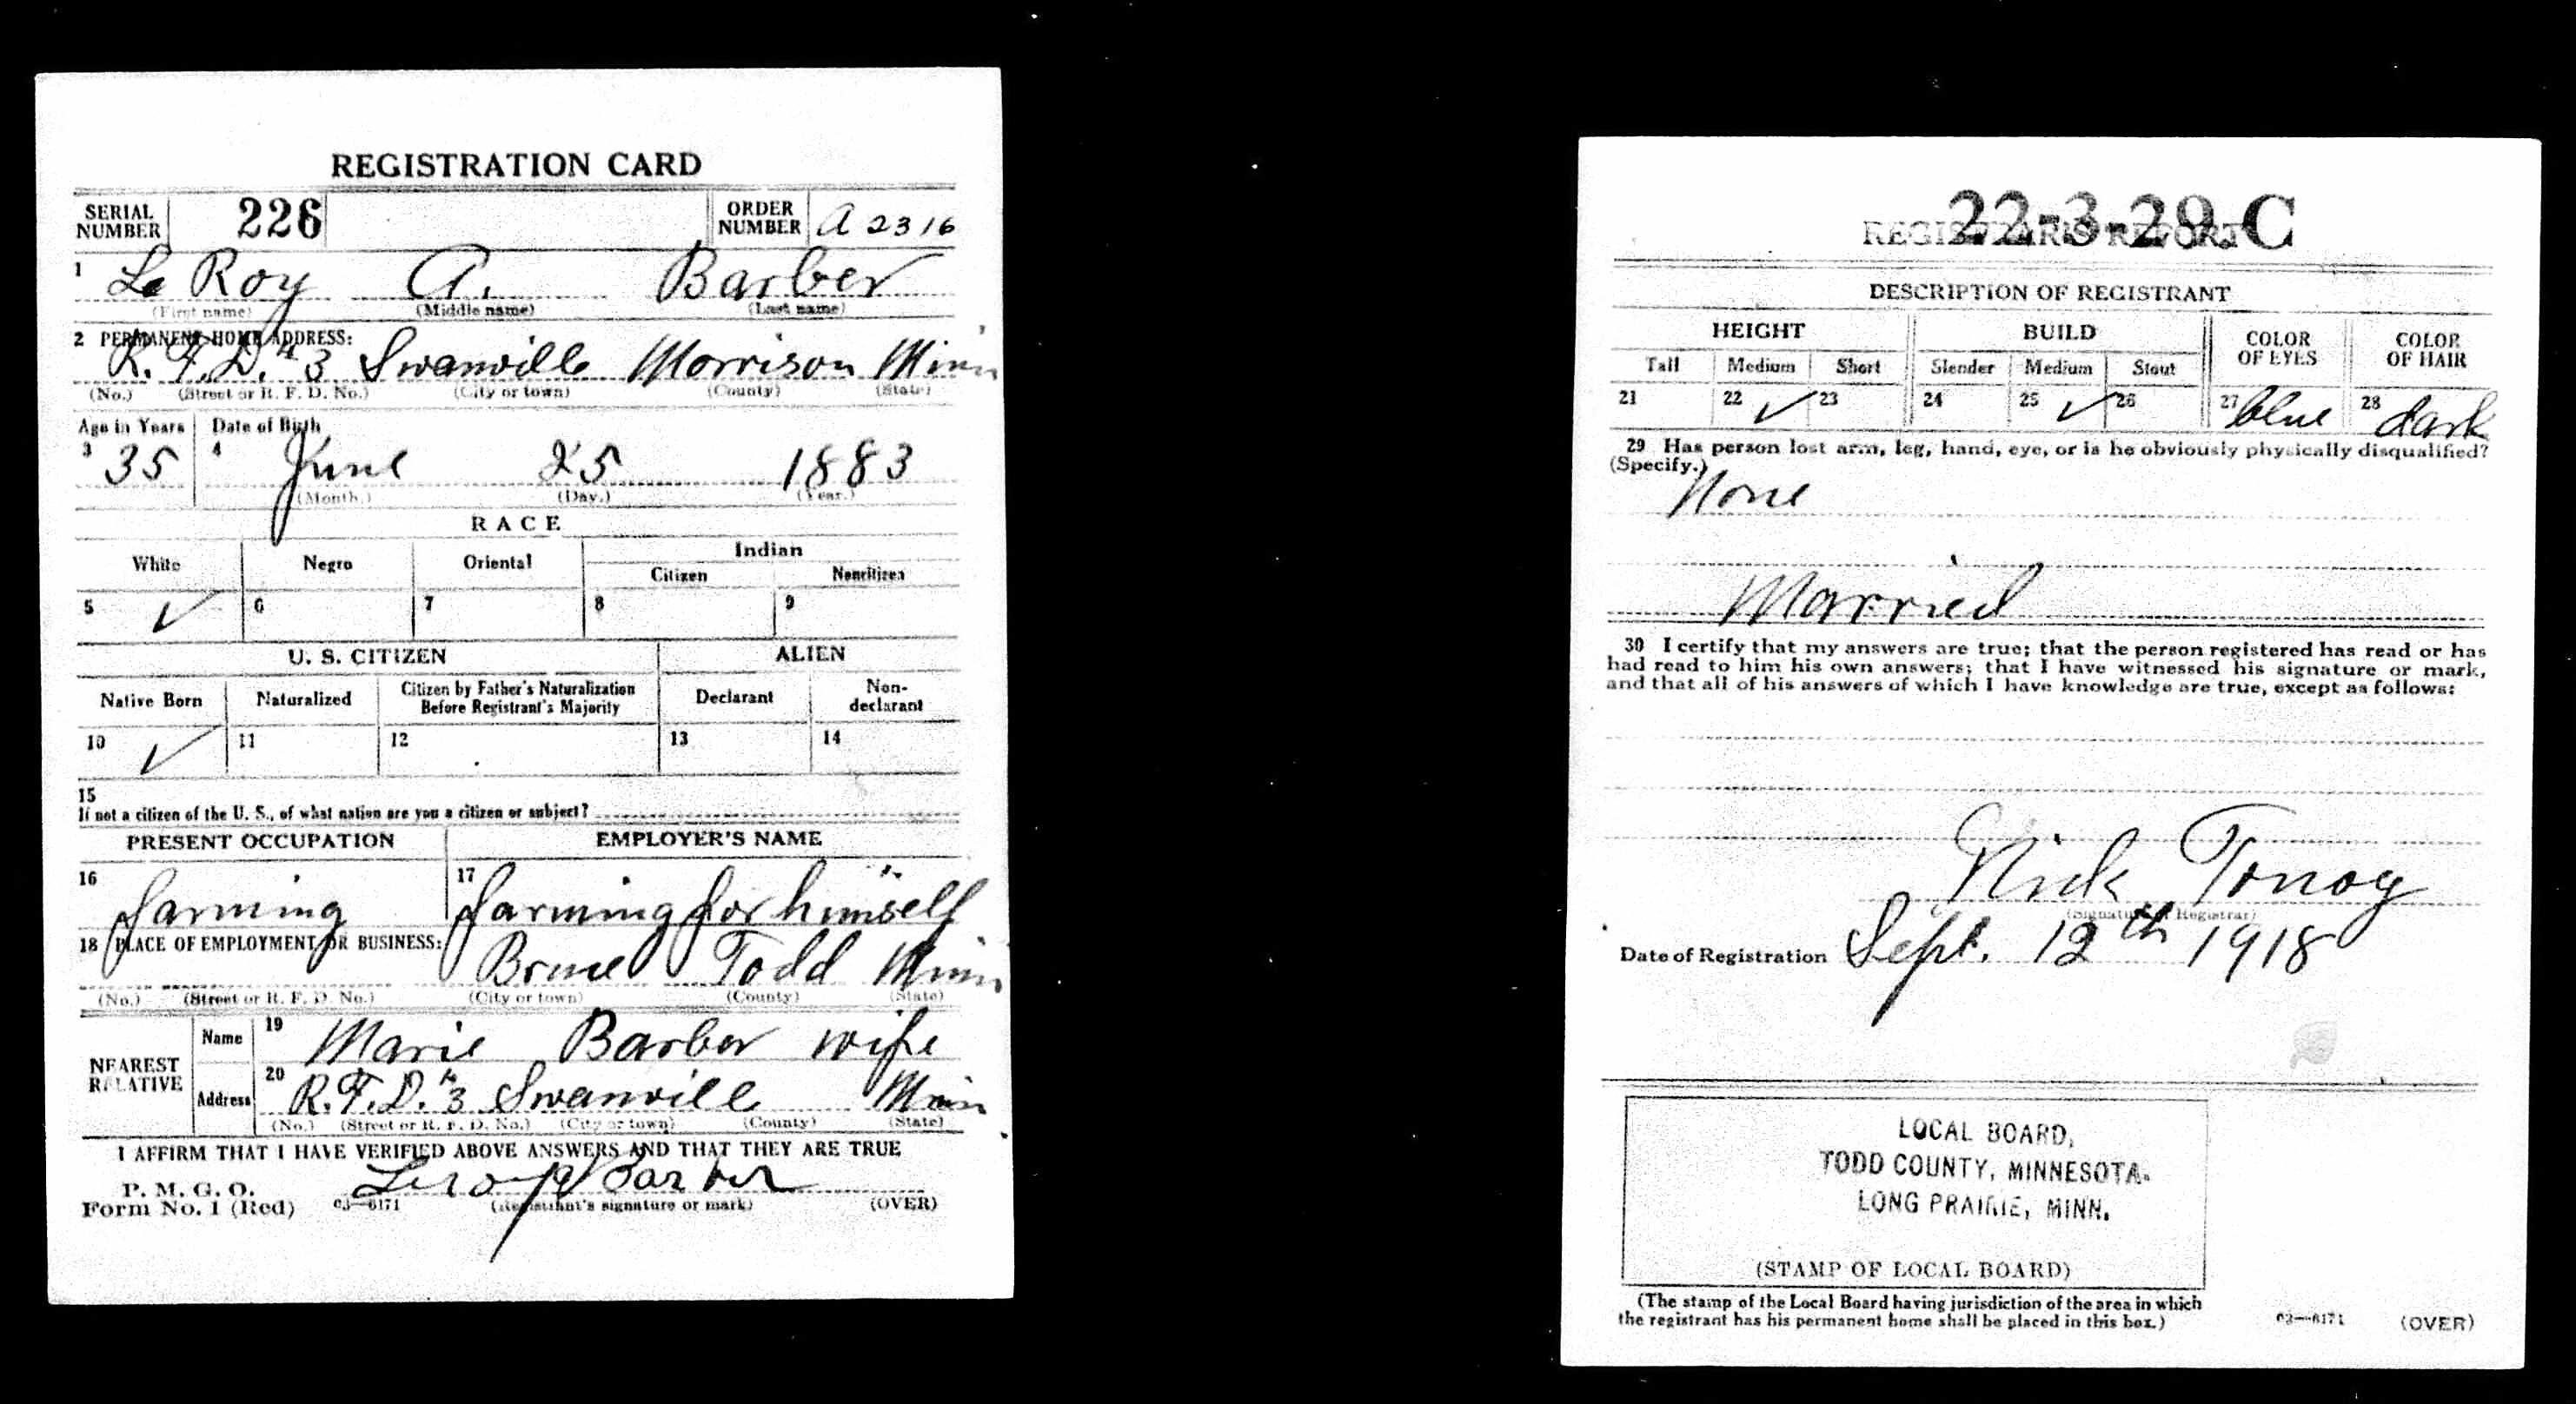 REGISTRATION CARD
SERIAL NUMBER 226 ORDER NUMBER A 2316
1 Le Roy A. Barber
(First name) (Middle name) (Last name)
2 PERMANENT HOME ADDRESS:
R.F.D. #3 Swanville Morrison Minn
(No.) (Street or R. F. D. No.) (City or town) (County) (State)
Age in Years Date of Birth
3 35 4 June 25 1883
(Month.) (Day.) (Year.)
RACE
White Negro Oriental Indian
Citizen Noncitizen
5 ✓ 6 7 8 9
U. S. CITIZEN ALIEN
Native Born Naturalized Citizen by Father's Naturalization Before Registrant's Majority Declarant Non-declarant
10 ✓ 11 12 13 14
15
If not a citizen of the U. S., of what nation are you a citizen or subject?
PRESENT OCCUPATION EMPLOYER'S NAME
16 farming 17 farming for himself
18 PLACE OF EMPLOYMENT OR BUSINESS:
Bruce Todd Minn
(No.) (Street or R. F. D. No.) (City or town) (County) (State)
NEAREST RELATIVE
Name 19 Marie Barber wife
Address 20 R.F.D. #3 Swanvill Minn
(No.) (Street or R. F. D. No.) (City or town) (County) (State)
I AFFIRM THAT I HAVE VERIFIED ABOVE ANSWERS AND THAT THEY ARE TRUE
P. M. G. O.
Form No. 1 (Red) 03—6171 Leroy A Barber
(Registrant's signature or mark) (OVER)
22-3-29.C
REGISTRAR'S REPORT
DESCRIPTION OF REGISTRANT
HEIGHT BUILD COLOR OF EYES COLOR OF HAIR
Tall Medium Short Slender Medium Stout
21 22 ✓ 23 24 25 ✓ 26 27 blue 28 dark
29 Has person lost arm, leg, hand, eye, or is he obviously physically disqualified?
(Specify.)
None
Married
30 I certify that my answers are true; that the person registered has read or has
had read to him his own answers; that I have witnessed his signature or mark,
and that all of his answers of which I have knowledge are true, except as follows:
Nick
(Signature of Registrar)
Date of Registration Sept. 12th 1918
LOCAL BOARD,
TODD COUNTY, MINNESOTA.
LONG PRAIRIE, MINN.
(STAMP OF LOCAL BOARD)
(The stamp of the Local Board having jurisdiction of the area in which
the registrant has his permanent home shall be placed in this box.)
03—6171 (OVER)